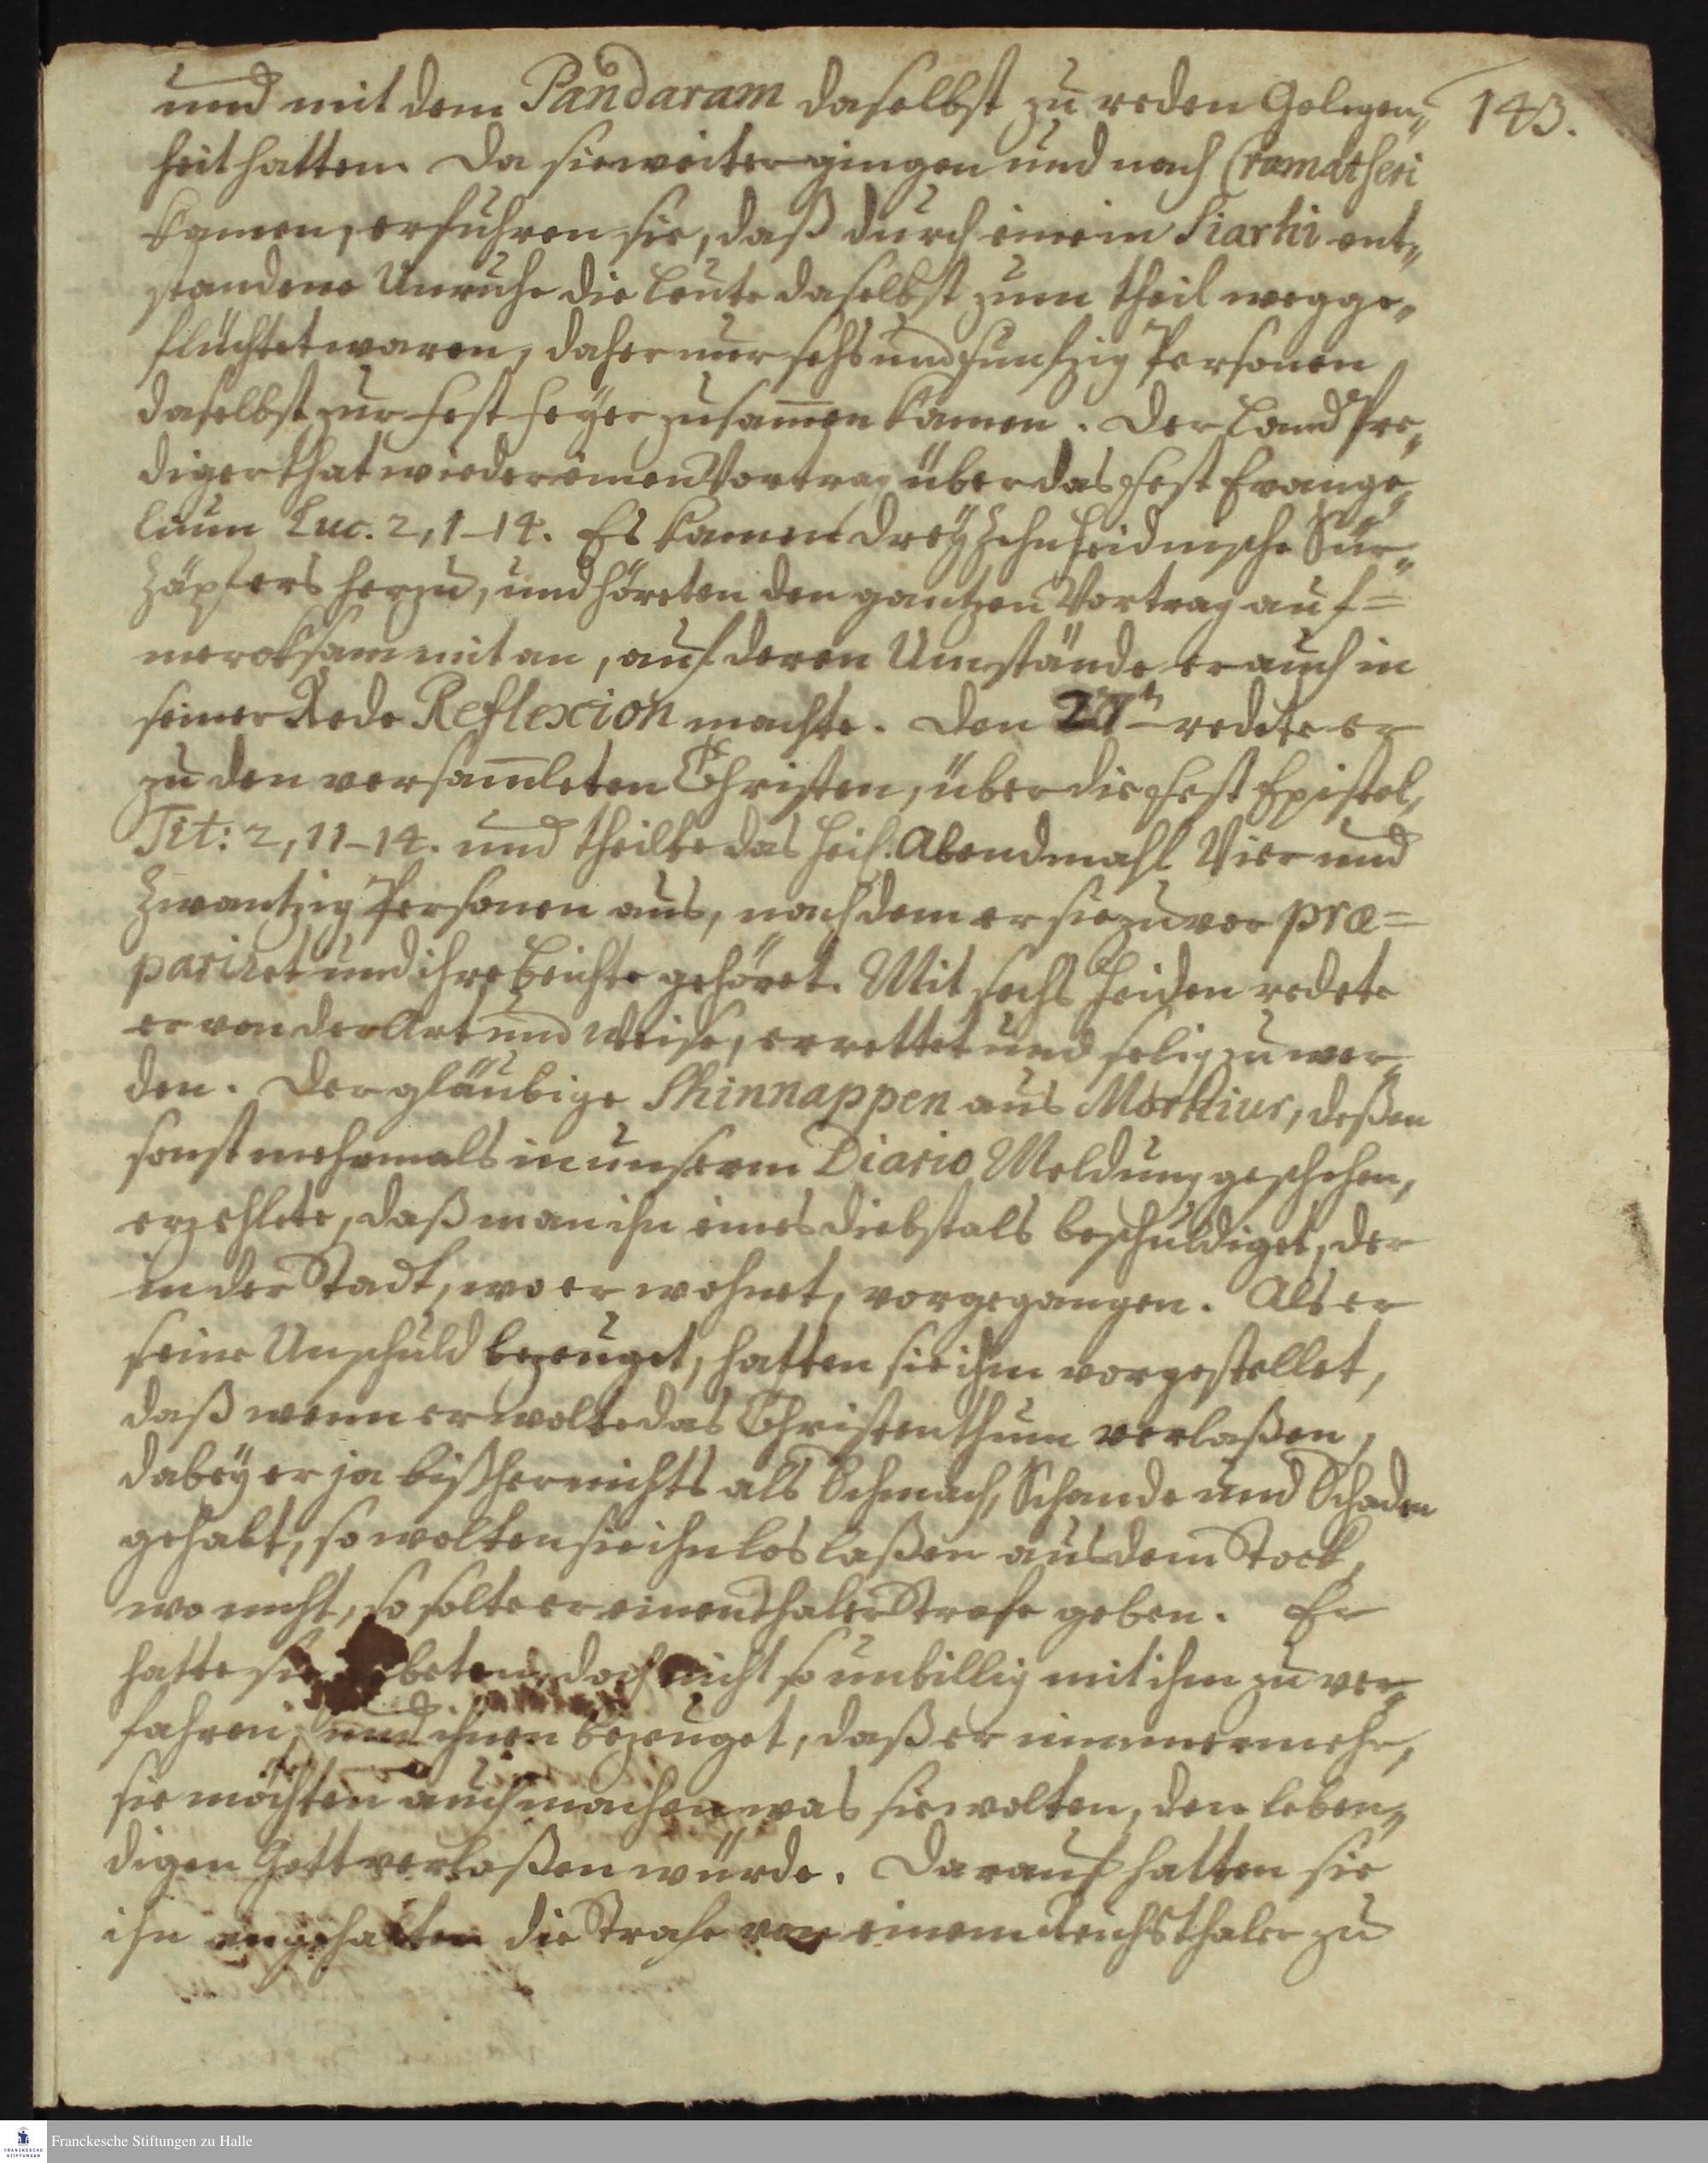 143.
und mit dem Pandaram daselbst zu reden Gelegen„
heit hatten. Da sie weiter gingen und nach Cramatheri
kamen, erfuhren sie, daß durch eine in Siarhi ent„
standene Unruhe die Leute daselbst zum theil wegge„
flüchtet waren, daher nur sechs und funfzig Personen
daselbst zur Fest Feyer zusam̄en kamen. Der Land Pre„
diger that wieder einen Vortrag über das Fest Evange„
lium Luc. 2, 1–14. Es kamen dreyzehn heidnische Sür„
Zäpfers herzu, und höreten den gantzen Vortrag auf=
mercksam mit an, auf deren Umstände er auch in
seiner Rede Reflexion machte. Den 27ten redete er
zu den versam̄leten Christen, über die Fest Epistel,
Tit: 2, 11–14. und theilte das Heil. Abendmahl Vier und
Zwantzig Personen aus, nachdem er sie zuvor præ=
pariret und ihre Beichte gehöret. Mit sechs Heiden redete
er von der Art und Weise, errettet und selig zu wer„
den. Der gläubige Shinnappen aus , deßen
sonst mehrmals in unserm Diario Meldung geschehen,
erzehlete, daß man ihn eines Diebstals beschuldiget, der
in der Stadt, wo er wohnet, vorgegangen. Als er
seine Unschuld bezeuget, hatten sie ihm vorgestellet,
daß wenn er wolte das Christenthum verlaßen,
dabey er ja bißher nichts als Schmach, Schande und Schaden
gehabt, so wolten sie ihn los laßen aus dem Stock,
wo nicht, so solte er einen Thaler Strafe geben. Er
hatte sie gebeten, doch nicht so unbillig mit ihm zu ver„
fahren, und ihnen bezeuget, daß er nimmermehr,
sie möchten auch machen was sie wolten, den leben„
digen Gott verlaßen würde. Darauf hatten sie
ihn angehalten die Strafe von einem Reichsthaler zu
Franckesche Stiftungen zu Halle